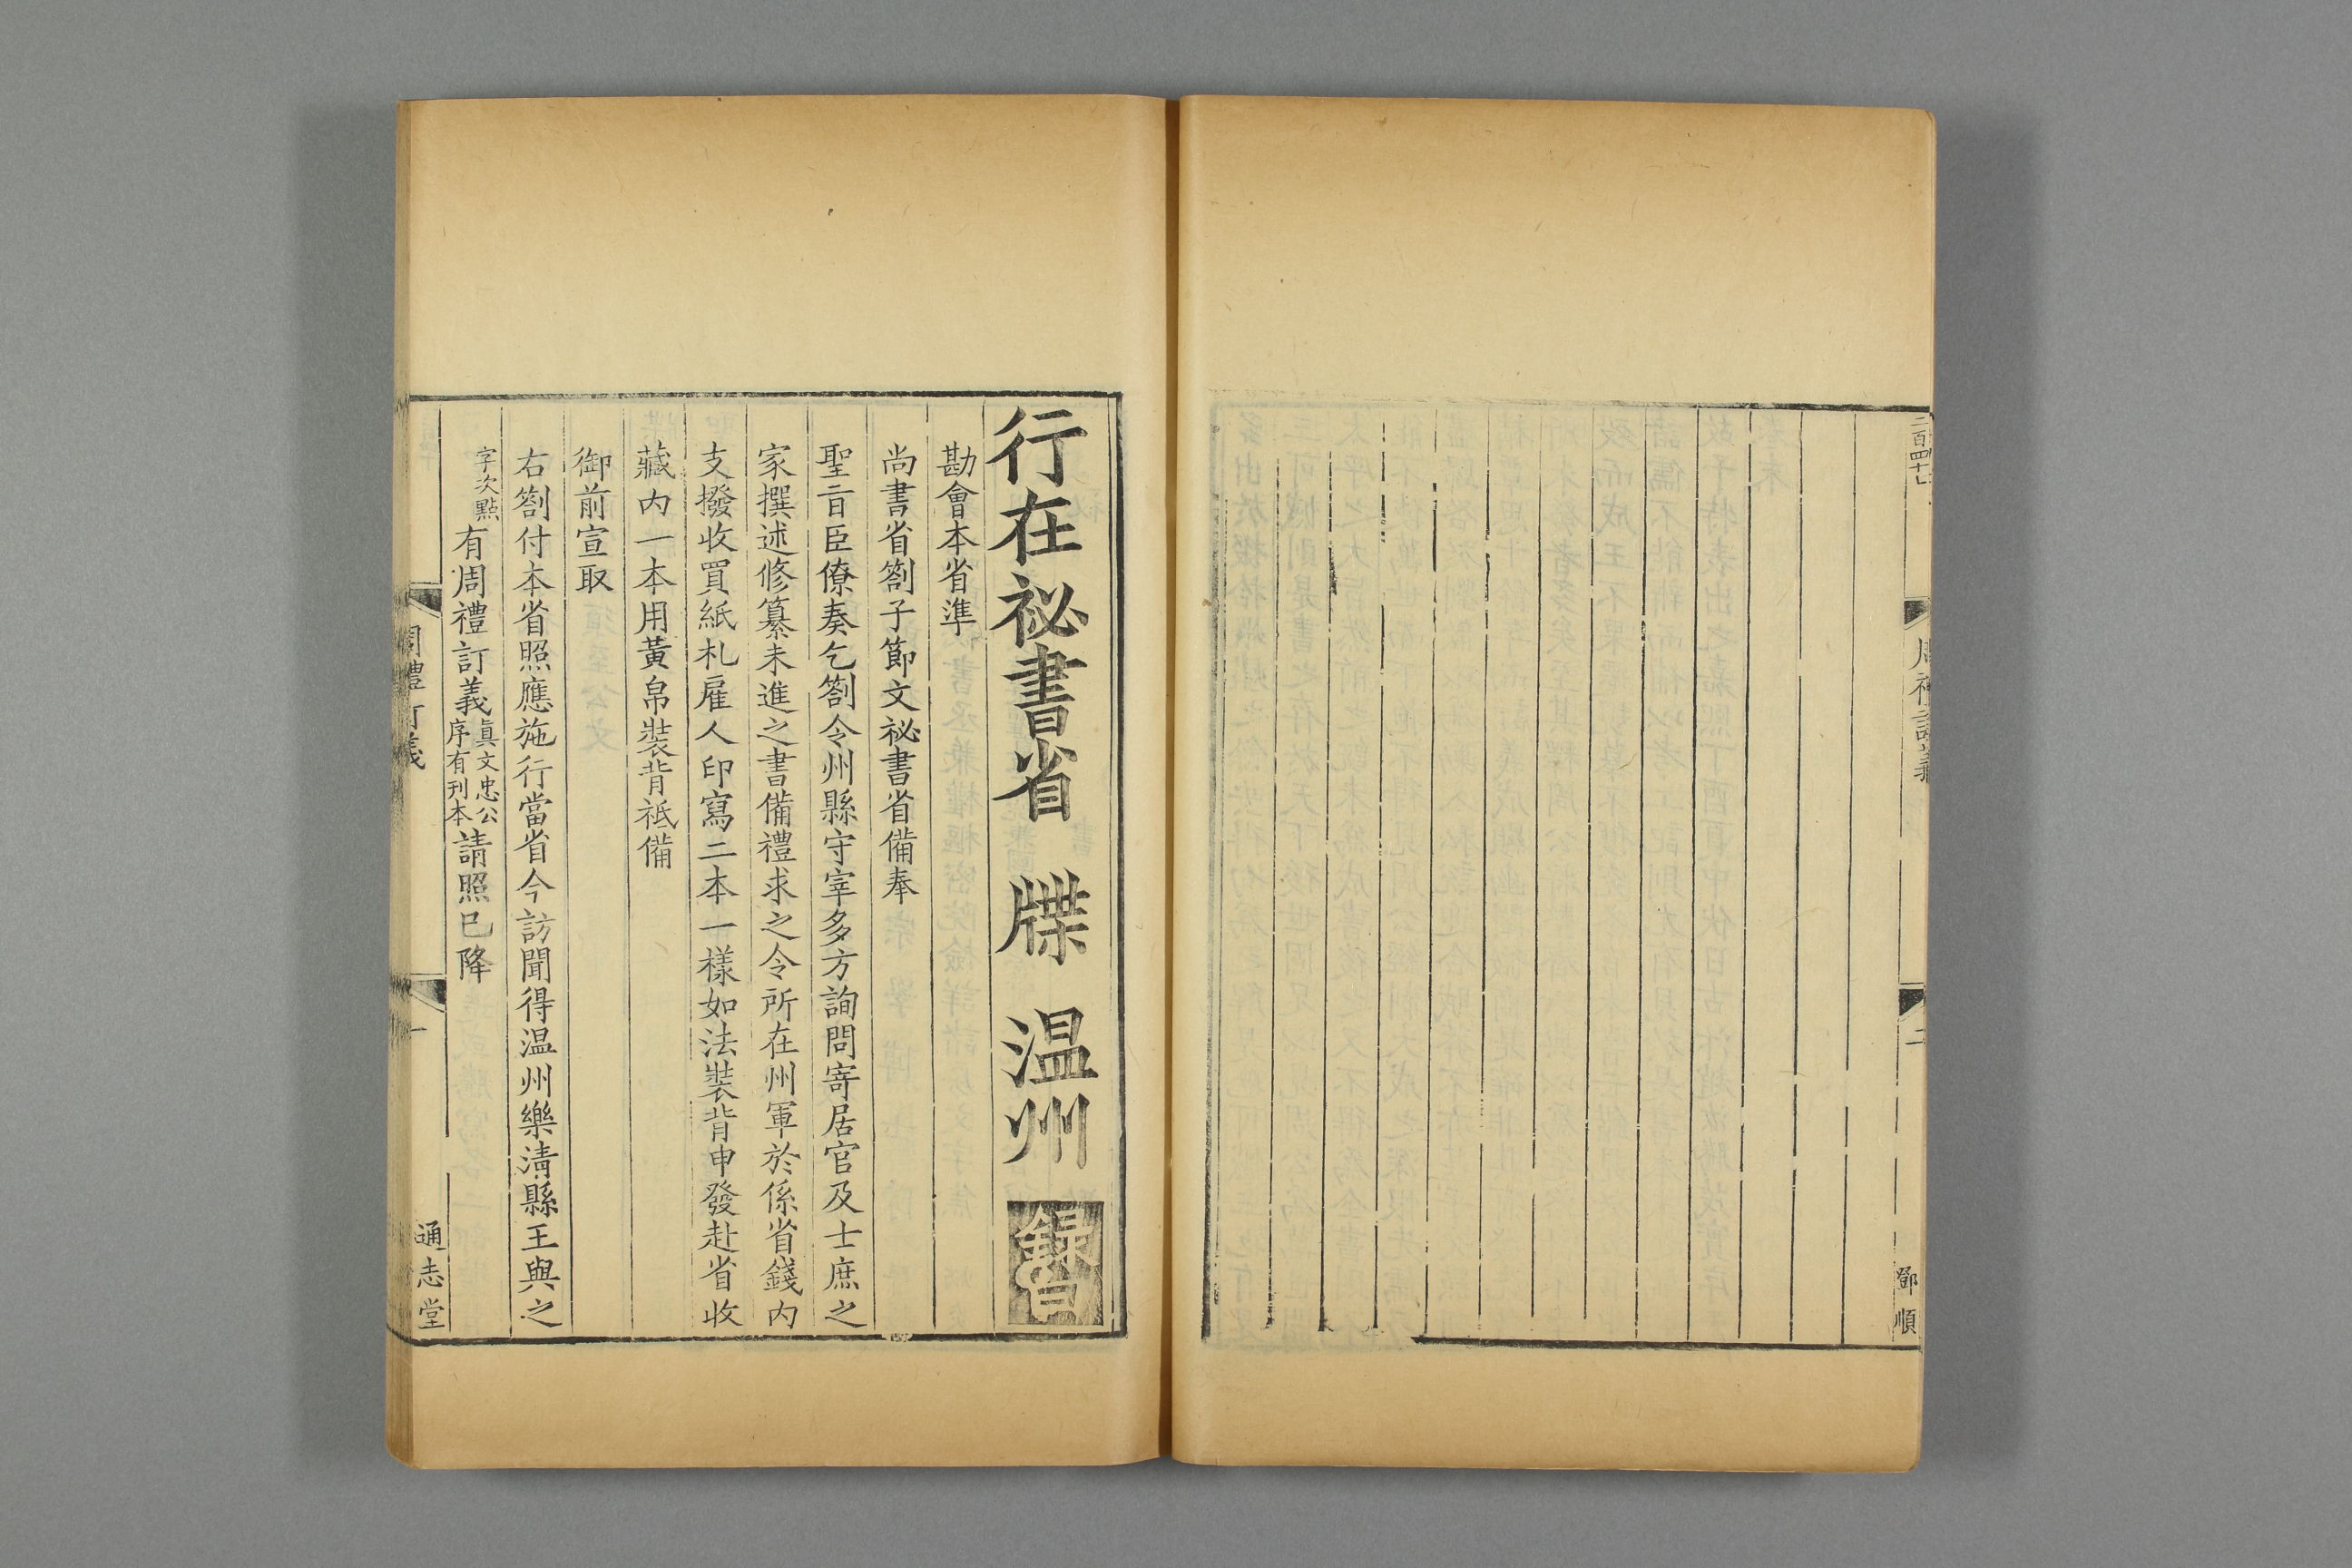 二百四十七
周禮訂義
二
鄧順
行在祕書省 牒 温州 録白
勘會本省準
尚書省劄子節文祕書省備奉
聖旨臣僚奏乞劄令州縣守宰多方詢問寄居官及士庶之
家撰述修纂未進之書備禮求之令所在州軍於係省錢内
支撥收買紙札雇人印寫二本一樣如法裝背申發赴省收
藏内一本用黃帛裝背祗備
御前宣取
右劄付本省照應施行當省今訪聞得温州樂清縣王與之
字次點有周禮訂義真文忠公序有刊本請照已降
周禮訂義
一
通志堂